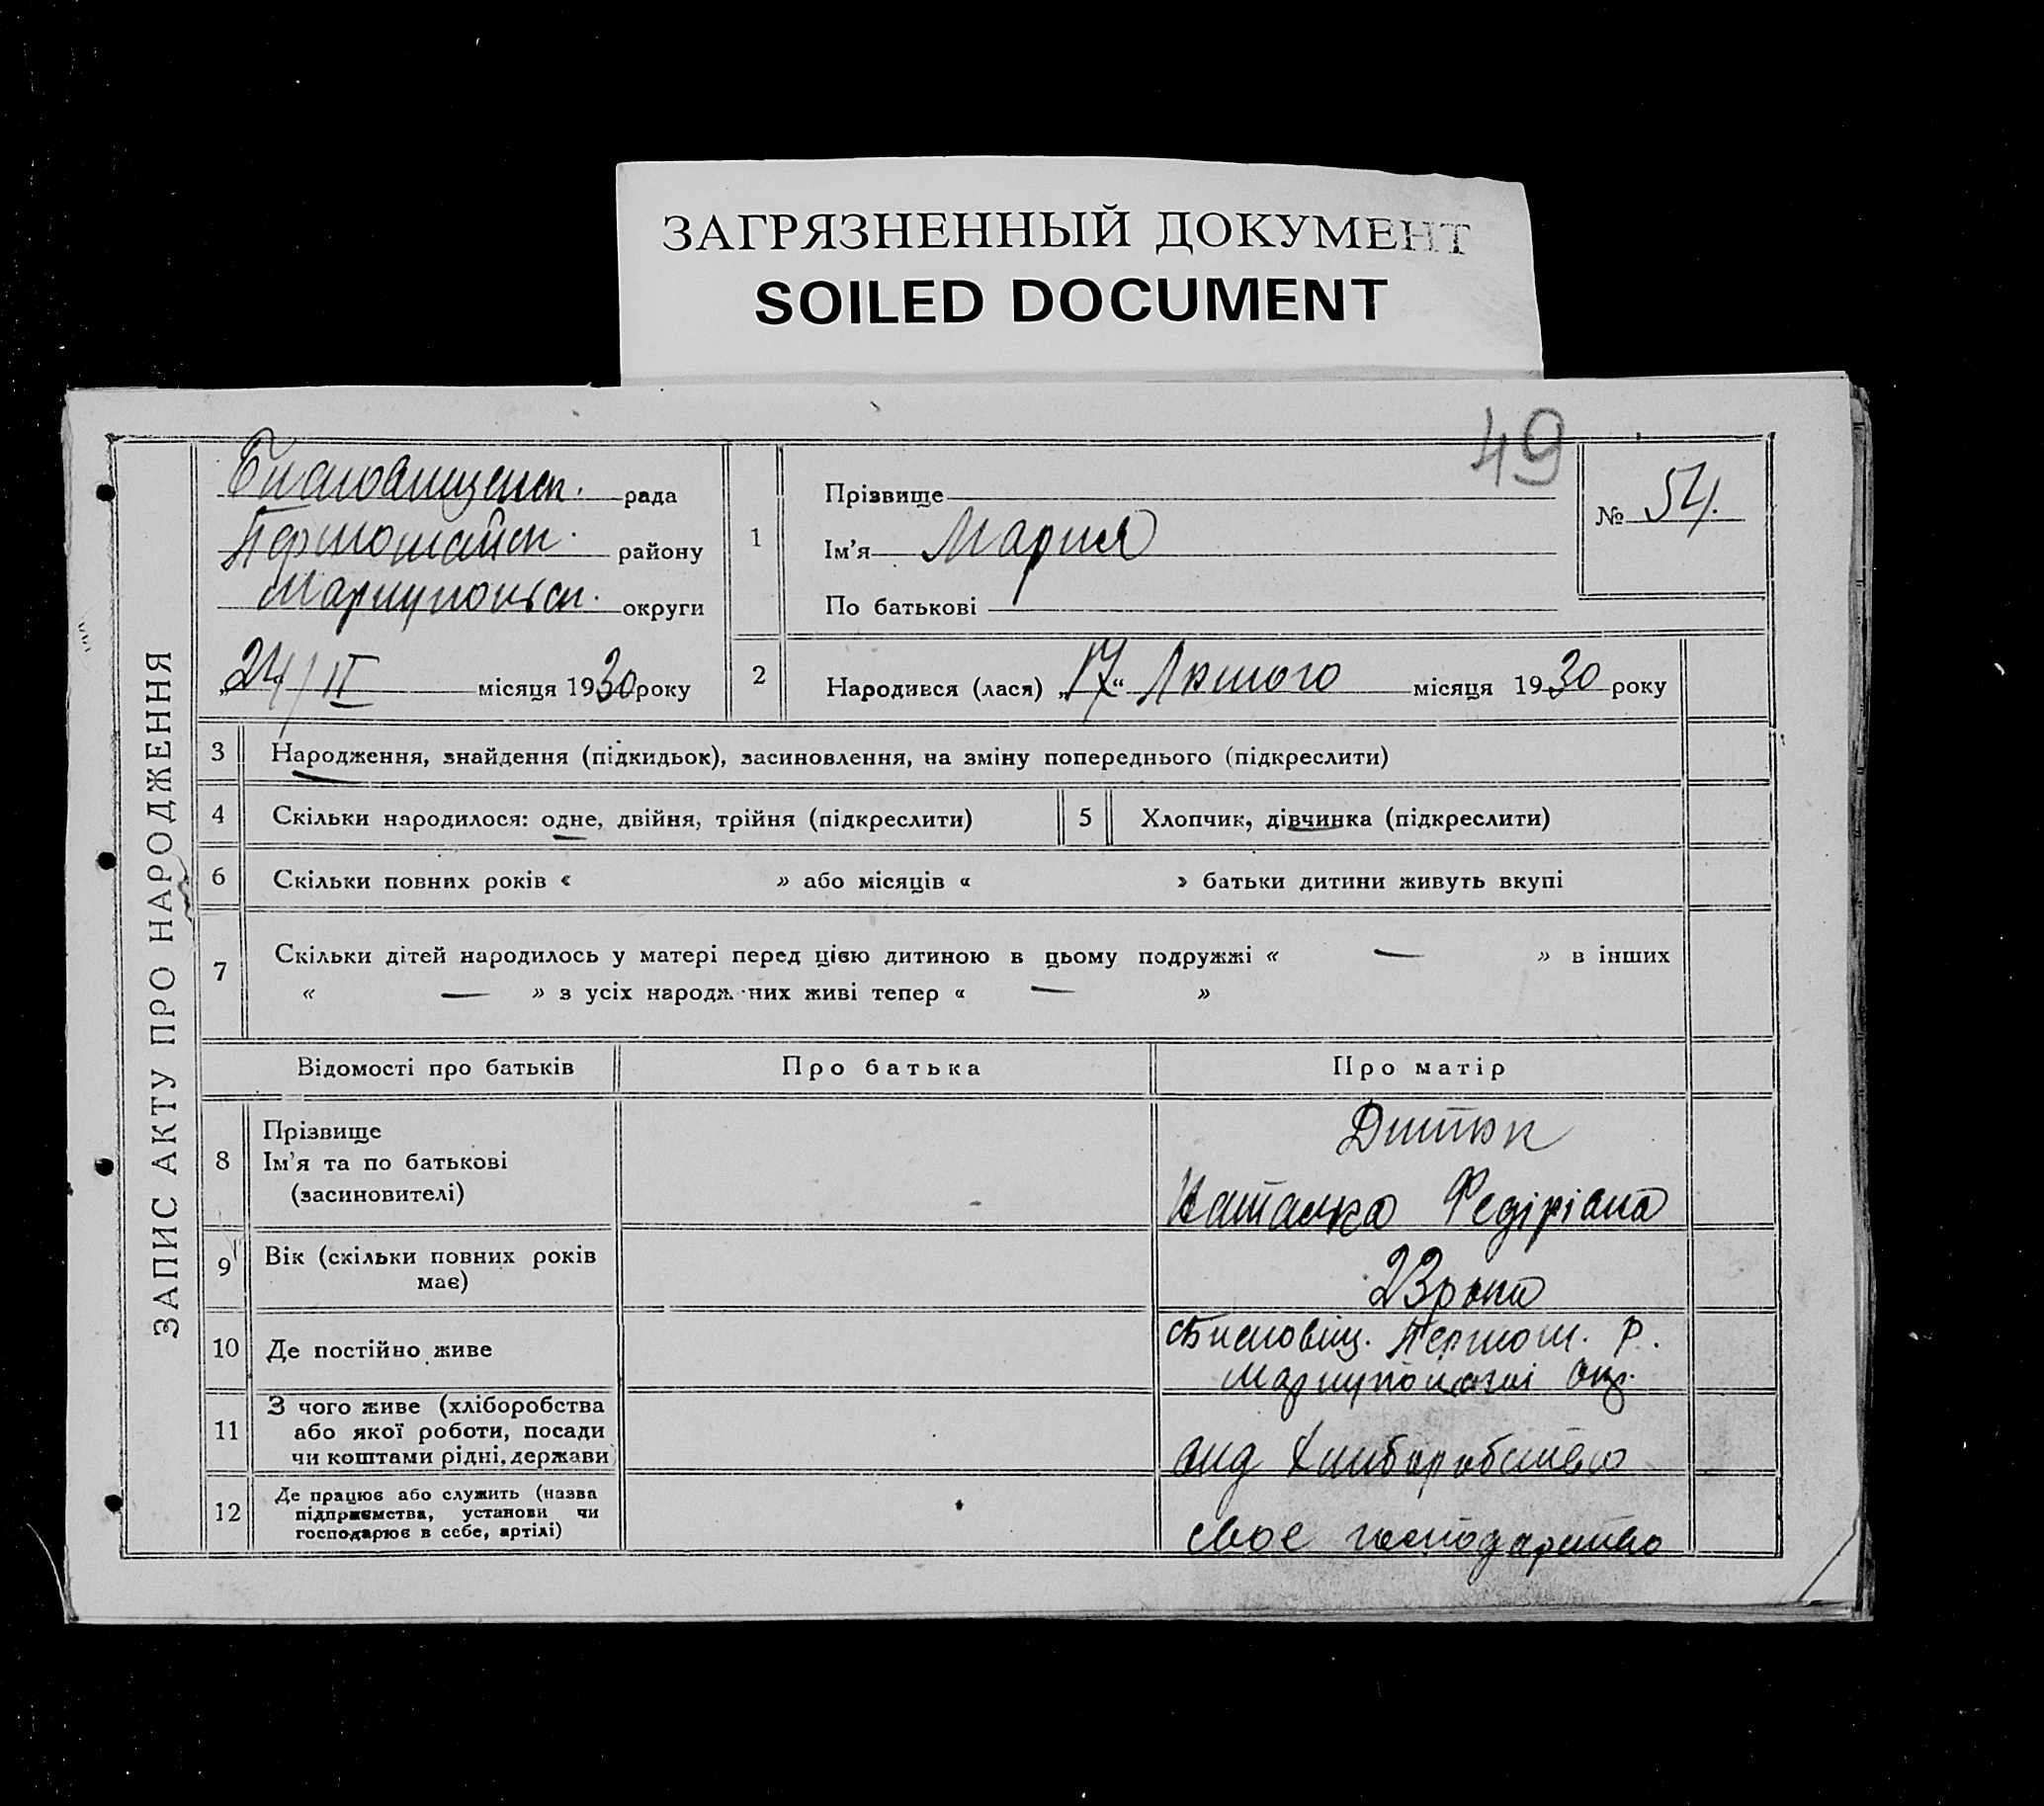 ЗАГРЯЗНЕННЫЙ ДОКУМЕНТ
SOILED DOCUMENT
49
ЗАПИС АКТУ ПРО НАРОДЖЕННЯ
рада
Першотравн. району
Мариупольск. округи
„24/II місяця 1930 року
1
Прізвище
Ім'я Мария
По батькові
№ 54.
2
Народився (лася) „17“ Лютого місяця 1930 року
3 Народження, знайдення (підкидьок), засиновлення, на зміну попереднього (підкреслити)
4 Скільки народилося: одне, двійня, трійня (підкреслити) 5 Хлопчик, дівчинка (підкреслити)
6 Скільки повних років « » або місяців « » батьки дитини живуть вкупі
7 Скільки дітей народилось у матері перед цією дитиною в цьому подружжі « — » в інших
« — » з усіх народж них живі тепер « — »
Відомості про батьків Про батька Про матір
8 Прізвище
Ім'я та по батькові
(засиновителі)
Дитюк
Наталка Федірівна
9 Вік (скільки повних років
має)
23 роки
10 Де постійно живе
Мариупольскої окр.
11 З чого живе (хліборобства
або якої роботи, посади
чи коштами рідні, держави
від хліборобство
12 Де працює або служить (назва
підприємства, установи чи
господарює в себе, артілі)
своє господарство